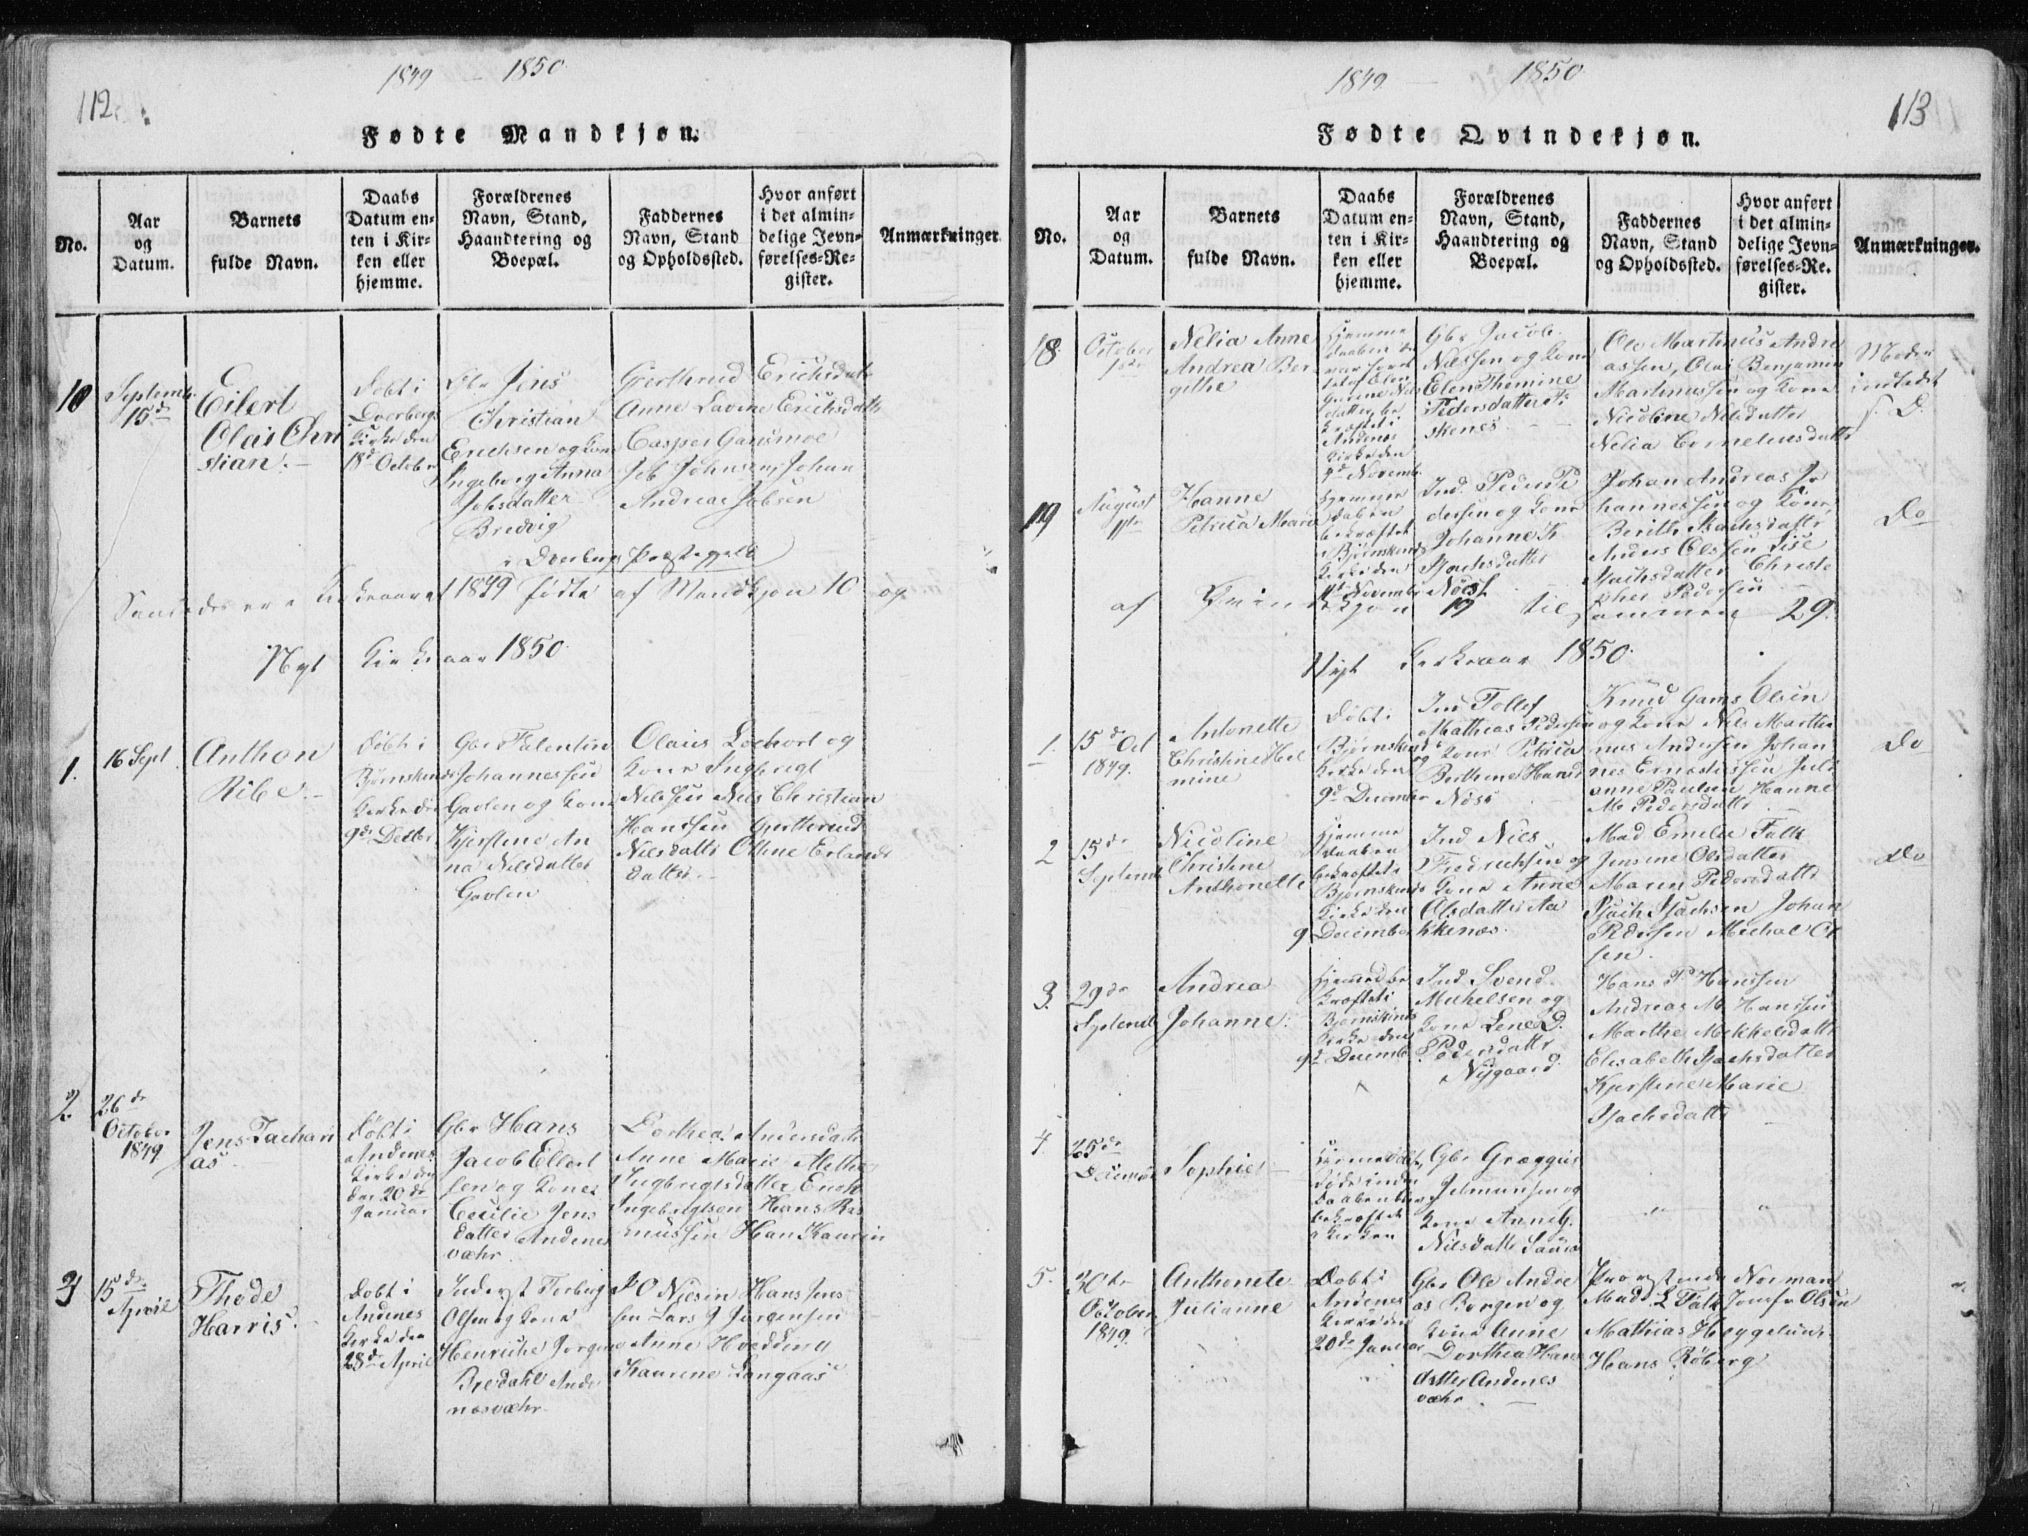 112
1849 – 1850
Fødte Mandkjøn.
No.
Aar
og
Datum.
Barnets
fulde Navn.
Daabs
Datum en-
ten i Kir-
ken eller
hjemme.
Forældrenes
Navn, Stand,
Haandtering og
Boepæl.
Faddernes
Navn, Stand
og Opholdssted.
Hvor anført
i det almin-
delige Jevn-
førelses-Re-
gister.
Anmærkninger.
10
Septemb.
15de
Eilert
Olai Chri
stian.
Døbt i
Dverbergs
Kirke den
18d October
Gbr Jens
Christian
Erichsen og Kone
Ingeborg Anna
Johsdatter
Bredvig
i Dverberg Præstegjeld
Gjerthrud Erichsdatr
Anne Lavine Erichsdattr
Casper Gansmoe
Jeb Johnsen, Johan
Andreas Jebsen
Saaledes ere i Kirkeaaret 1849 fødte af Mandkjøn 10 og
Nyt Kirkeaar 1850.
1.
16 Sept.
Anthon
Ribe.
Døbt i
Bjørnskinds
Kirke den
9de Decbr
Gbr Falentin
Johannessen
Gavlen og Kone
Kjerstine An
na Nilsdatter
Gavlen
Olaus Lockort og
Kone Ingbrigt
Nilssen Nils Christian
Hanssen Gjerthrud
Nilsdattr Oline Erlands
datter
2.
26de
October
1849
Jens Zachari
as
Døbt i
Andenes
Kirke den
den 20de
Januar
Gbr Hans
Jacob Ellert
sen og Kone
Cecilie Jens
datter Andenes
væhr
Dorthea Andersdatr
Anne Marie Mette
Ingbrigtsdatter Enok
Ingebrigtsen Hans Ras
mussen Han Kaurin
3
15de
April
Thode
Harris.
Døbt i
Andenes
Kirke den
28de April
Inderst Torberg
Olsen og Kone
Henriche Jørgine
Bredahl Ande
nesvæhr
P O Nilsen Hans Jens
sen Lars J Jørgensen
Anne Hvedding
Kaurene Langaas
113
1849 – 1850
Fødte Qvindekjøn.
No.
Aar
og
Datum.
Barnets
fulde Navn.
Daabs
Datum en-
ten i Kir-
ken eller
hjemme.
Forældrenes
Navn, Stand,
Haandtering og
Boepæl.
Faddernes
Navn, Stand
og Opholdssted.
Hvor anført
i det almin-
delige Jevn-
førelses-Re-
gister.
Anmærkninger.
18.
October
1ste
Nelia Anne
Andrea Ber
githe
Hjemme
daaben
Andenes
Kirke den
9d Novemb.
Gbr Jacob
Nilssen og Kone
Elen Themine
Pedersdatter
skenes
Ole Martinus Andre
assen, Olai Benjamin
Martinussen og Kone
Nicoline Nilsdatter
Nelia Corneliusdattr
Moder
indledet
s. D.
19
August
11te
Hanne
Petrica Marie
Hjemme
daaben
bekræftet
i Bjørnskinds
Kirke den
11te November
Ind. Peder Pe
dersen og Kone
Johanne K
Isachsdatter
Nøss
Johan Andreas Jo
hannessen og Kone,
Berith Isachsdatter
Anders Olssen Lise
Isachsdatter Christo
pher Pedersen
Do
af Qvindekjøn 19 til sammen 29.
Nyt Kirkeaar 1850.
1.
15de Oct
1849.
Antonette
Christine Hel
mine
Døbt i
Bjørnskinds
Kirke den
9d December
Ind Tollef
Mathias Pedersen
og Kone Petrica
Berthine Hansd
Nøss
Knud Gams Olsen
og Kone Nils Marthi
nus Andersen Johan
nes Ernestussen Juli
anne Paulsen Hanne
M Pedersdattr
Do
2
15de
Septemb
Nicoline
Christine
Anthonette
Hjemme
daaben
bekræftet i
Bjørnskinds
Kirke den
9 December
Ind Nils
Fredrichsen og
Kone Anne
Olsdatter Aa
kkenes.
Mad Emelie Falk
Jensine Olsdatter
Maren Pedersdattr
Isach Isachsen Johan
Pedersen Michal Ol
sen.
Do
3.
29de
Septemb
Andrea
Johanne.
Hjemmed be
kræftet i
Bjørnskinds
Kirke den
9d Decemb
Ind Svend
Michelsen og
Kone Lene D.
Pedersdattr
Nygaard.
Hans P Hanssen
Andreas M Hanssen
Marthe Mikkelsdatr
Elisabeth Isachsdatter
Kjerstine Marie
Isachsdattr
4
25de
Decemb
Sophie
Hjemmedøbt,
døde inden
Daaben blev
bekræftet
i Kirken
Gbr Græggus
Jelmunsen og
Kone Anne G.
Nilsdattr Saura
" "
5.
30te
October
1849.
Anthonete
Julianne
Døbt i
Andenes
Kirke den
20de Januar
Gbr Ole Andre
as Borgen og
Kone Anne
Dorthea Hans
datter Andenes
væhr
Proprstinde Norman
Madd L Falk Jomfr Olsen
Mathias Heggelund
Hans Røberg